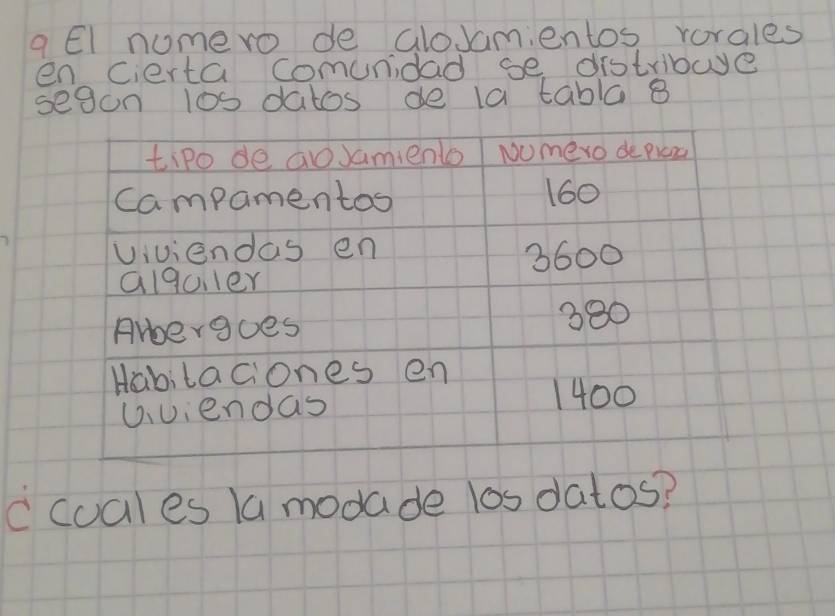 9 El numero de alojamientos rorales
en cierta comunidad se distribuye
segun los datos de la tabla 8
tipo de alojamiento Numero de plaza
campamentos 160
viviendas en 3600
alquiler
Arbergues 380
Habitaciones en
viviendas 1400
¿ cual es la moda de los datos?